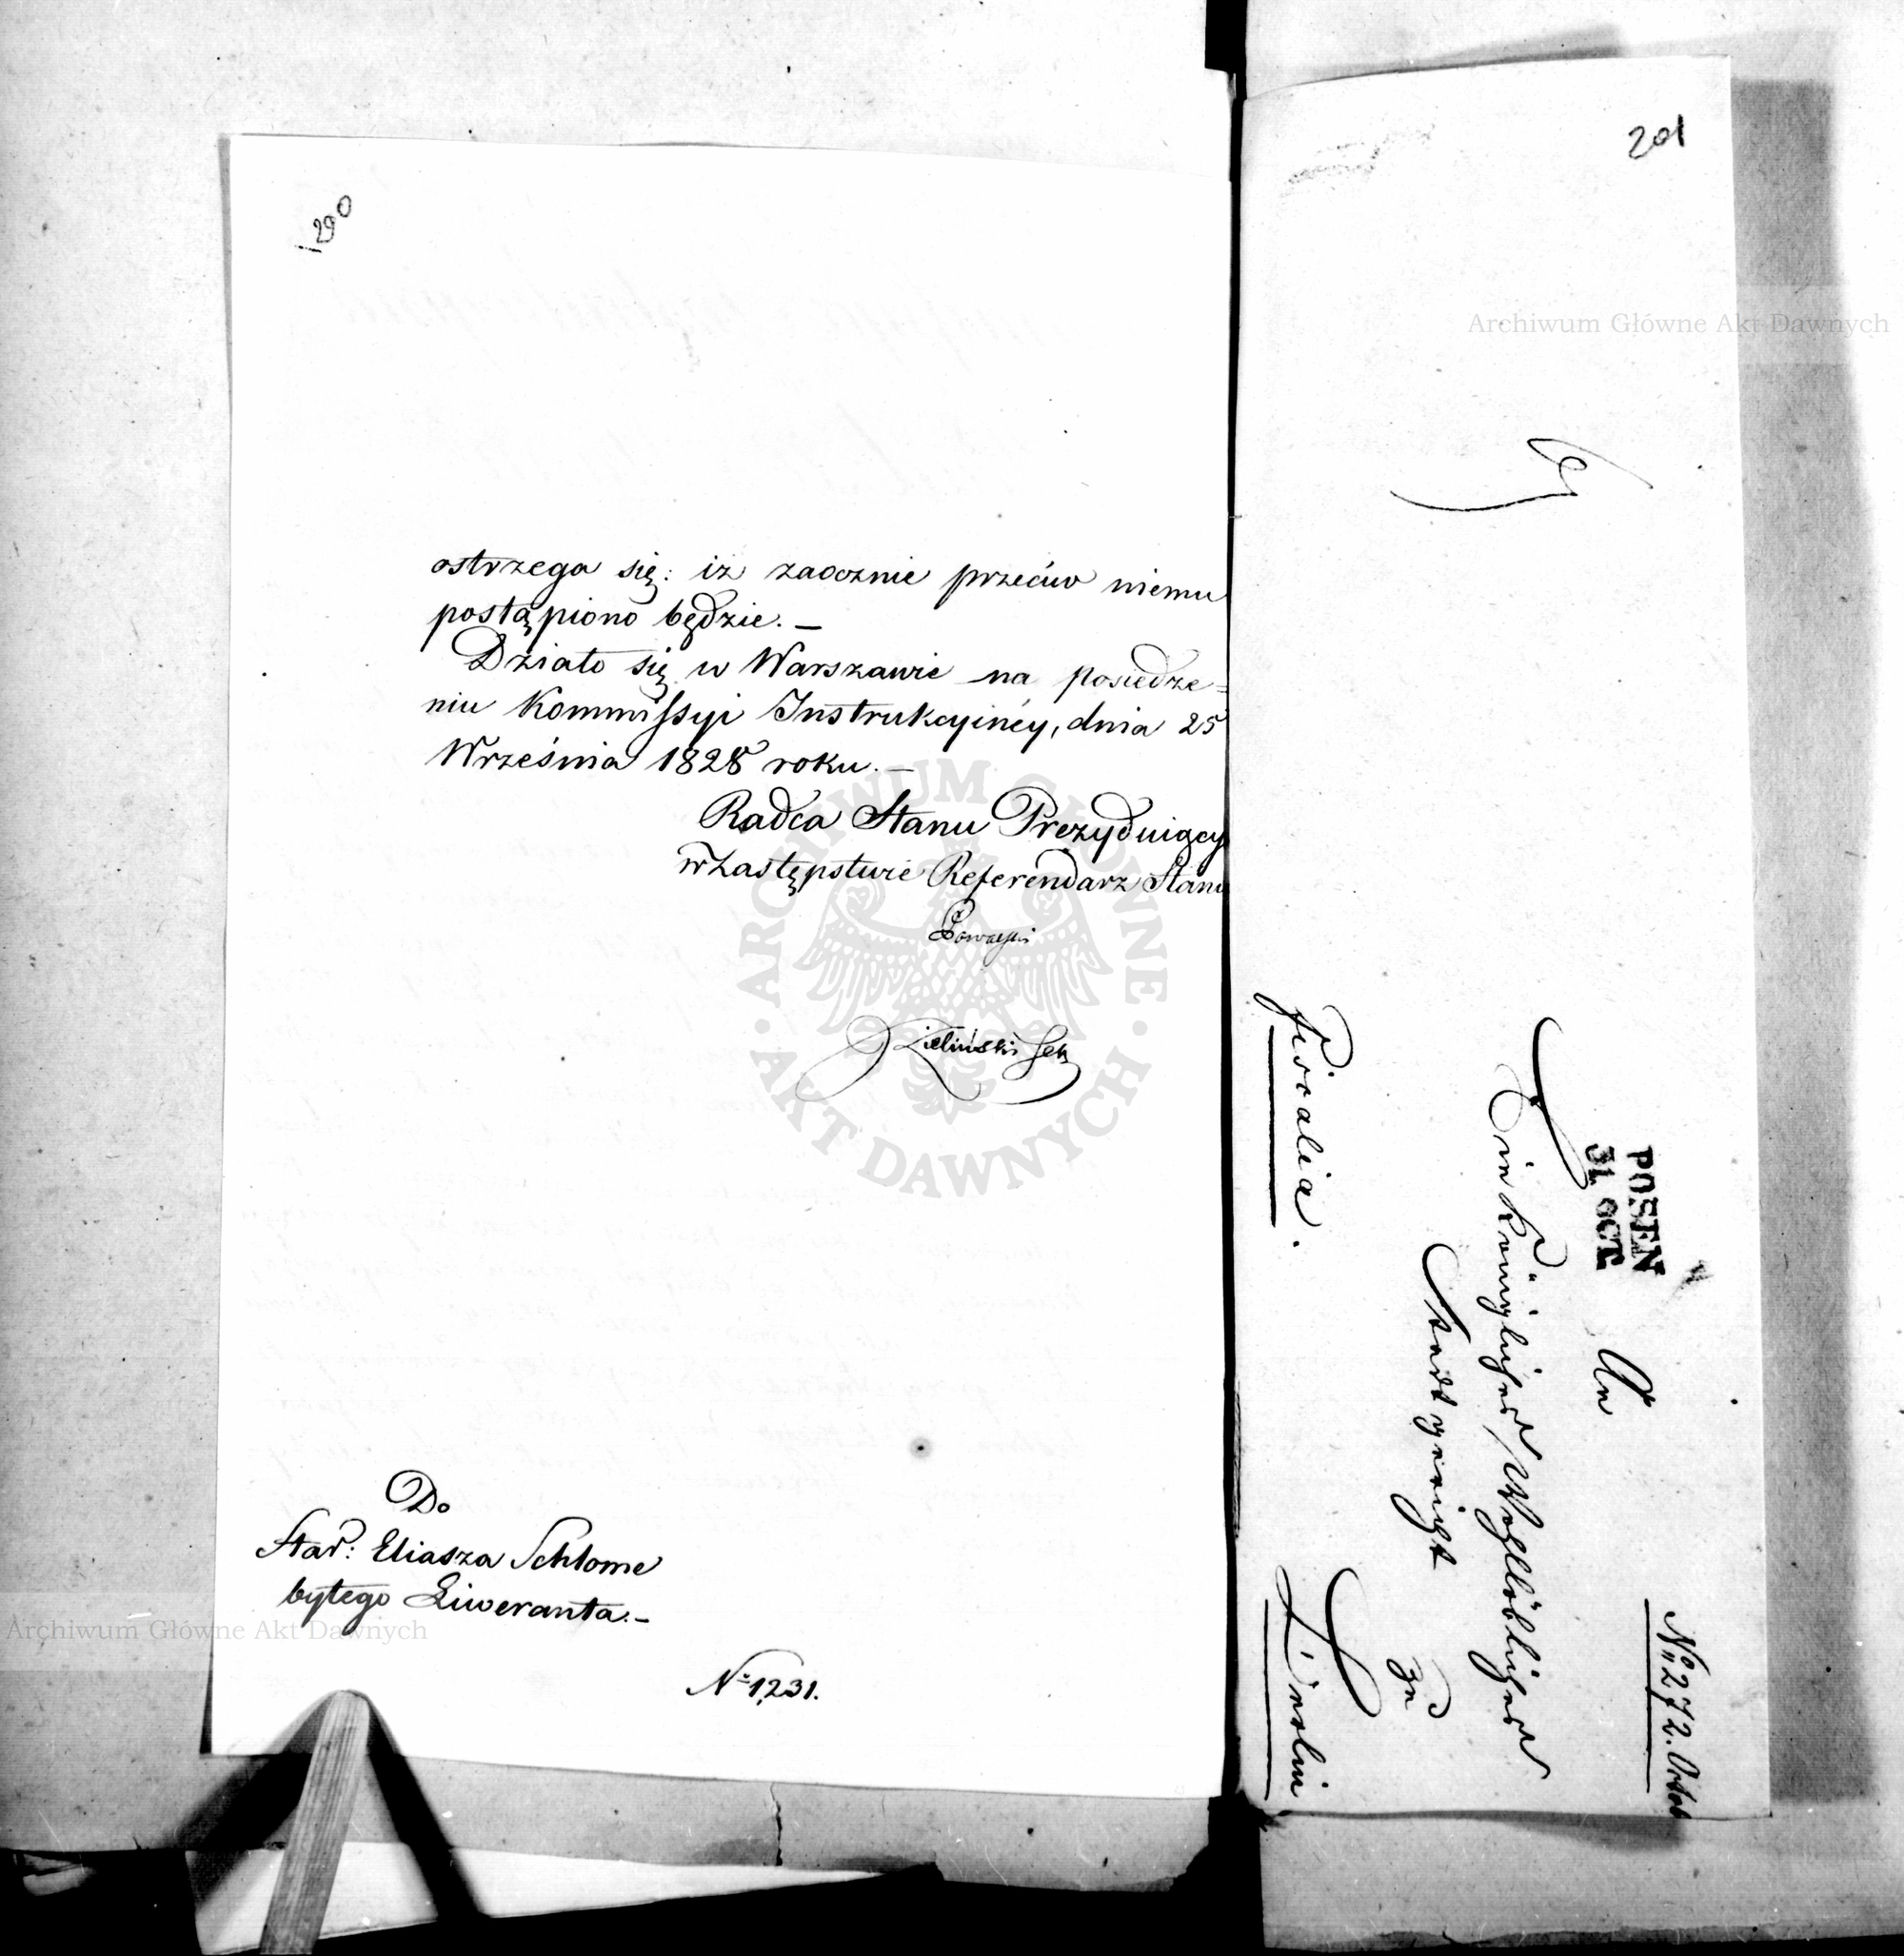 290
ostrzega się: iz zaocznie przeciw niemu
postąpiono będzie. —
Działo się w Warszawie na posiedze=
niu Kommissyi Instrukcyinéy, dnia 25
Września 1828 roku. —
Radca Stanu Prezyduiący
w Zastępstwie Referendarz Stanu
Zieliński Sek
Do
Star: Eliasza Schlome
byłego Liweranta. —
N° 1,231.
201
N° 272. Octob
POSEN
31 OCT.
An
Ein Königliches Wohllöbliches
Stadtgericht
zu
Berlin
Fiscalia.
Archiwum Główne Akt Dawnych
Archiwum Główne Akt Dawnych
ARCHIWUM GŁÓWNE · AKT DAWNYCH ·